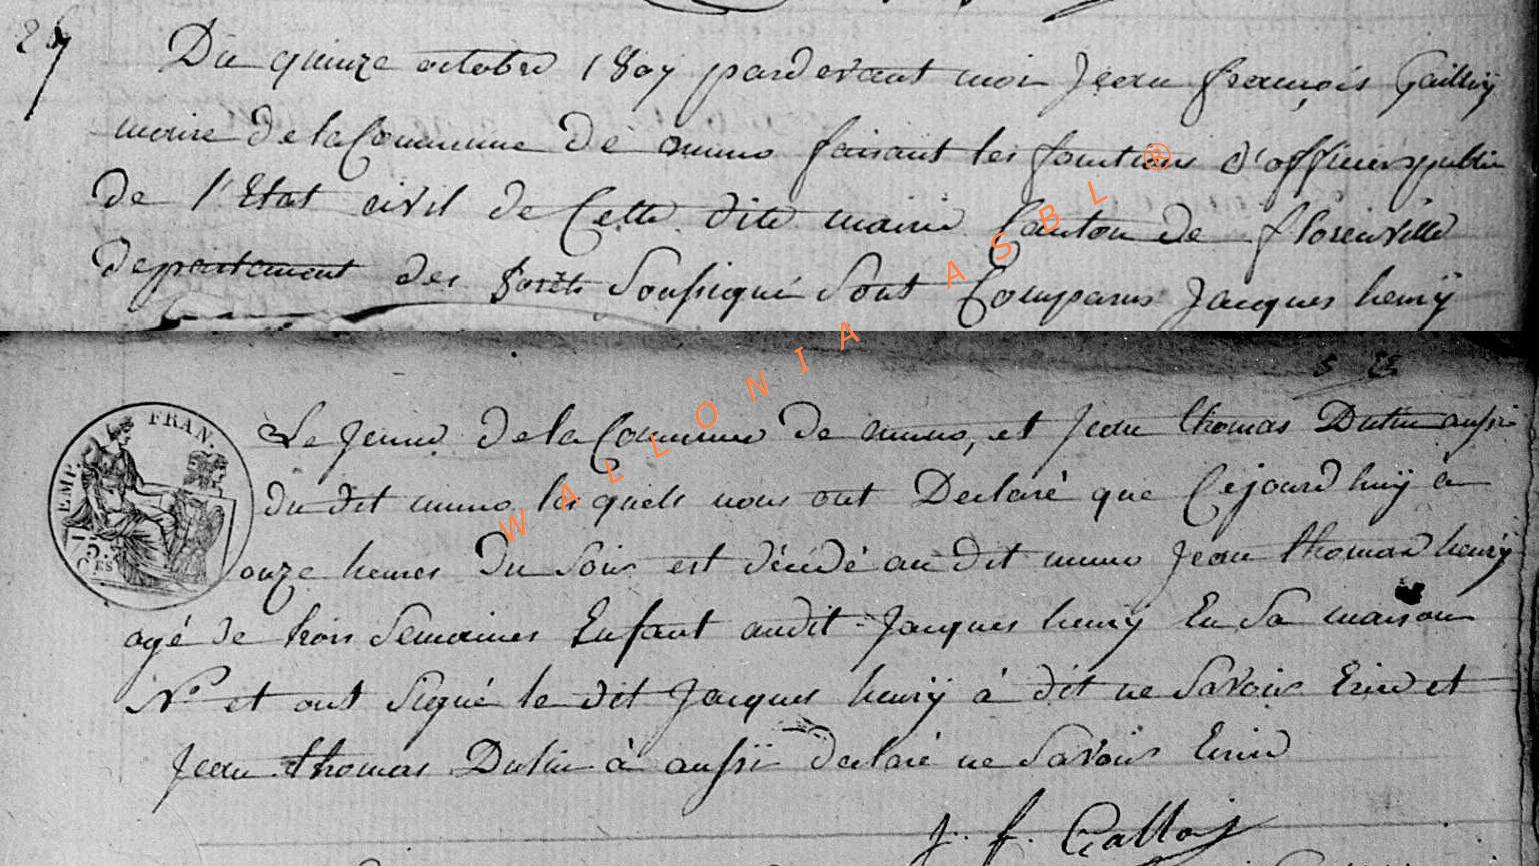 Du quinze octobre 1807 pardevant moi Jean françois
maire de la Commune de muno faisant les fonctions d'officier public
de l'Etat civil de Cette dite mairie Canton de florenville
departement des forêts Soussigné Sont Comparus Jacques henrÿ
Le Jeune de la Commune de muno, et Jean thomas aussi
du dit muno les quels nous ont Declaré que Cejourd huÿ à
onze heures Du Soir est décédé au dit muno Jean thomas henrÿ
agé de trois Semaines Enfant audit Jacques henrÿ En Sa maison
N.° et ont Signé le dit Jacques henrÿ à dit ne Savoir Ecrire et
Jean thomas à aussi declaré ne Savoir Ecrire
J. f.
EMP. FRAN.
75.
CES
WALLONIA ASBL ®